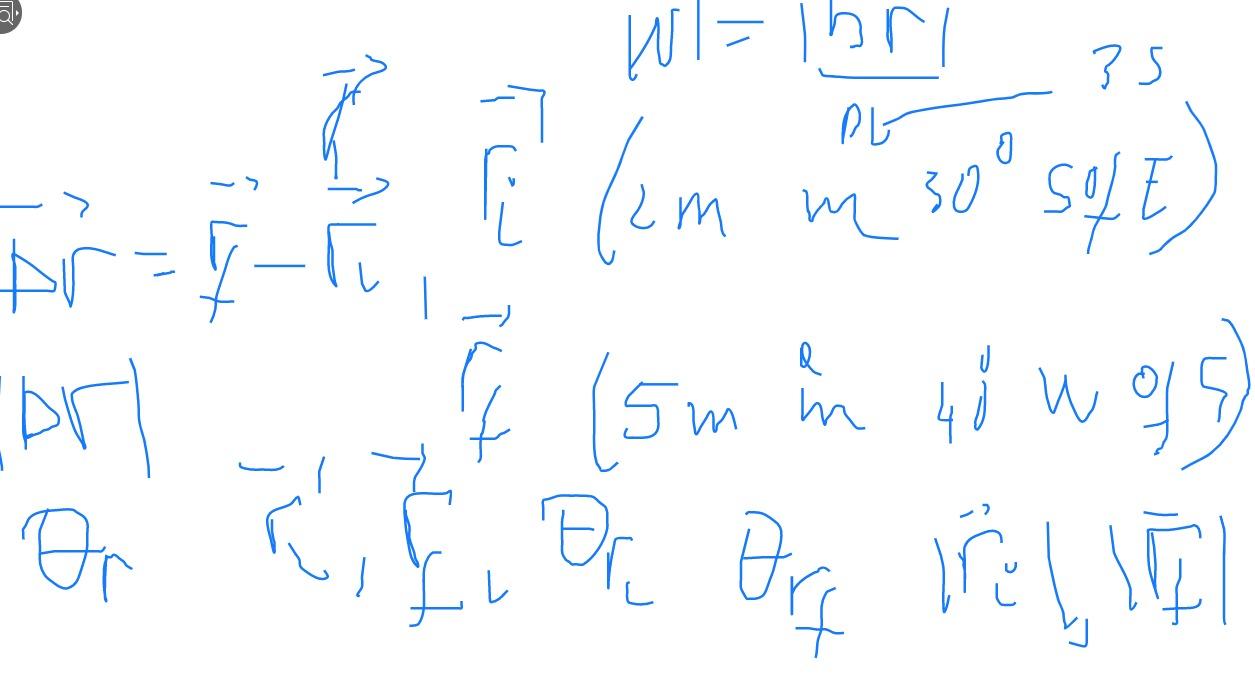 |v| = |Δr|
Δt 3 s
r⃗
r⃗i (2m in 30° S of E)
Δr⃗ = r⃗f − r⃗i ,
r⃗f (5m in 40 W of S)
|Δr|
θr r⃗i , r⃗f , θri θrf |r⃗i| , |r⃗f|